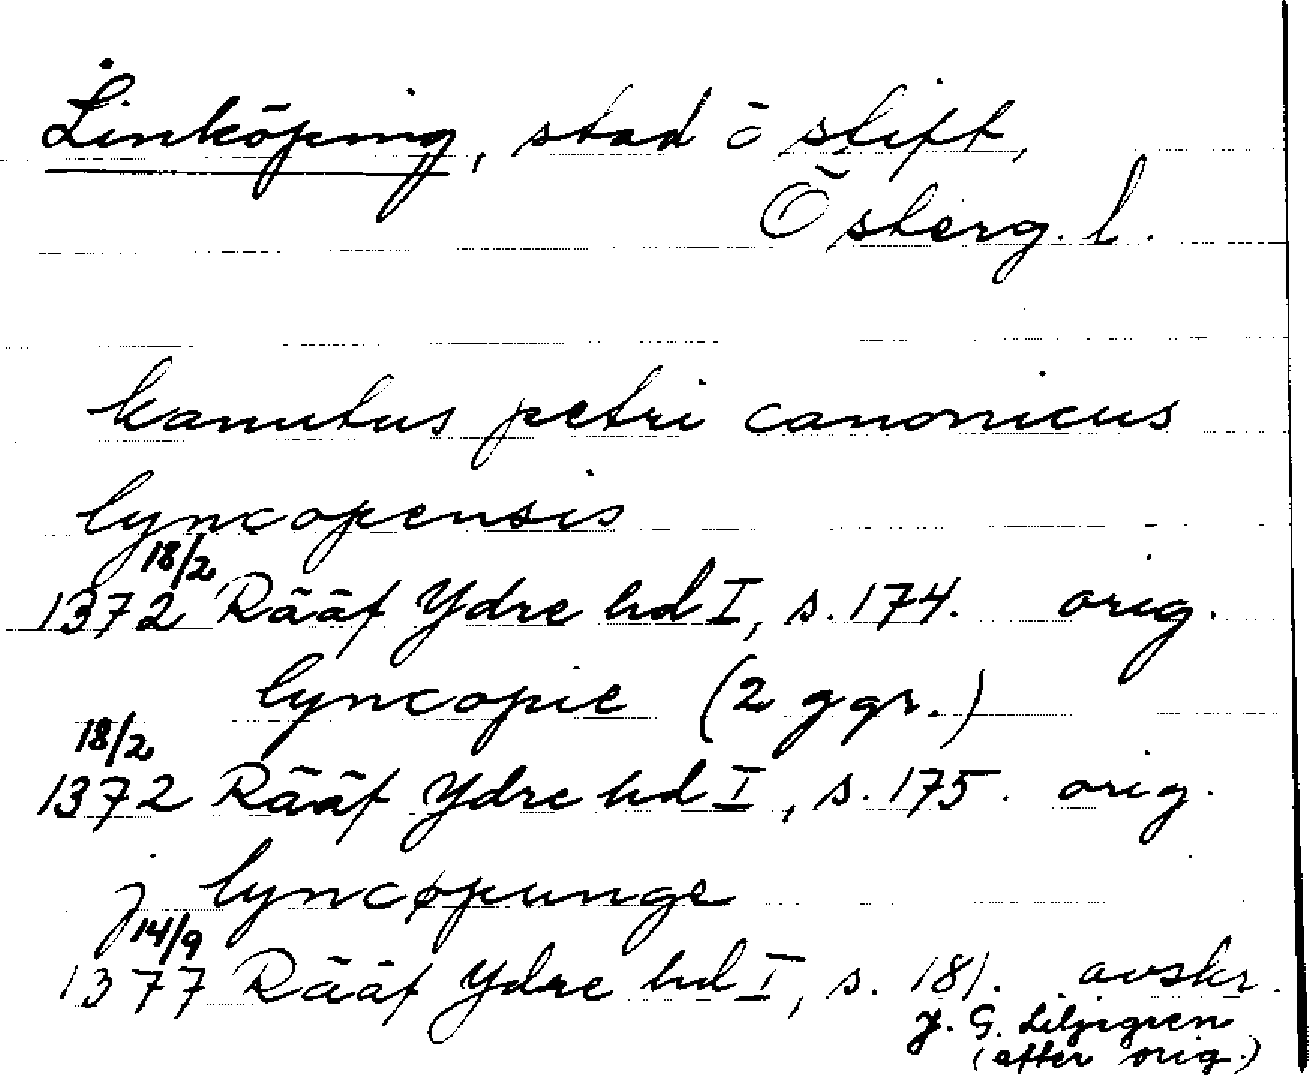 Linköping, stad o stift,
Österg. l.
kanutus petri canonicus
lyncopensis
18/2
1372 Rääf Ydre hd I, s. 174. orig.
lyncopie (2 ggr.)
18/2
1372 Rääf Ydre hd I, s. 175. orig.
j lyncøpunge
14/9
1377 Rääf Ydre hd I, s. 181. avskr.
J. G. Liljegren
(efter orig.)